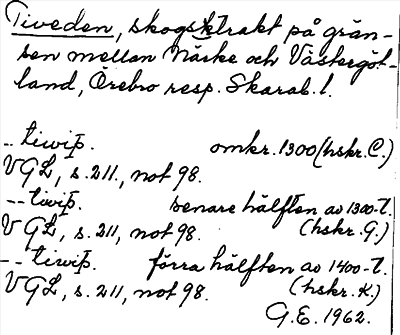 Tiveden, skogstrakt på grän-
sen mellan Närke och Västergöt-
land, Örebro resp. Skarab. l.
-- tiwiþ. omkr. 1300 (hskr. C.)
VGL, s. 211, not 98.
-- tiwiþ. senare hälften av 1300-t.
VGL, s. 211, not 98. (hskr. G.)
-- tiwiþ. förra hälften av 1400-t.
VGL, s. 211, not 98. (hskr. K.)
G.E. 1962.